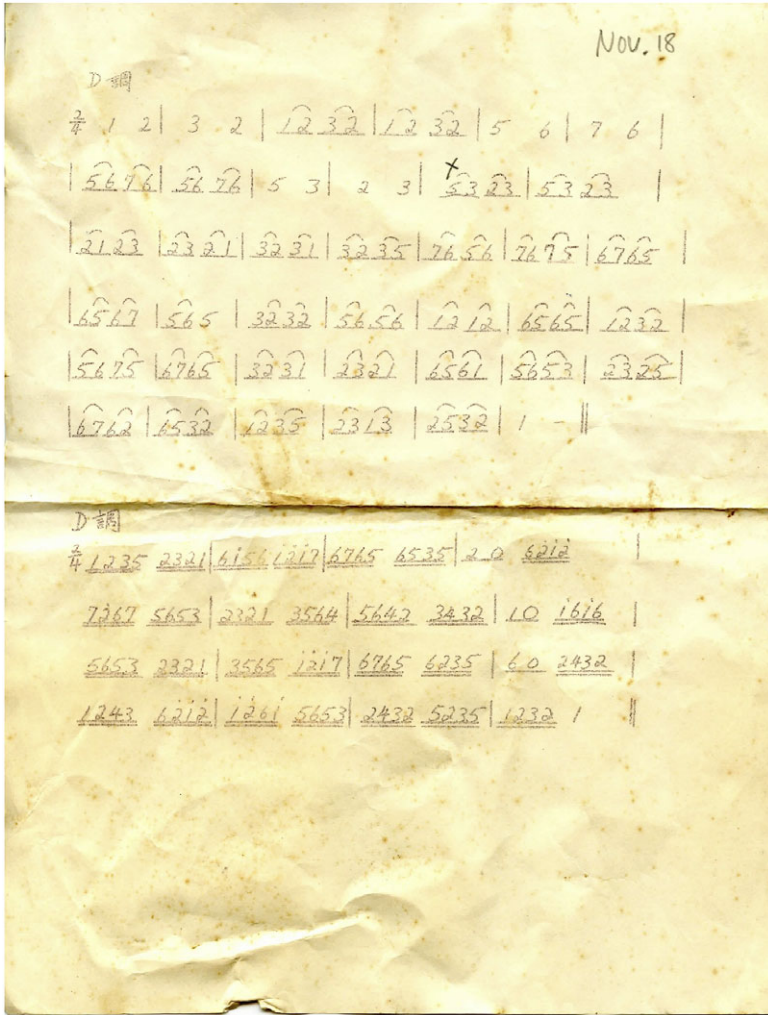 Nov. 18
D調
2/4 1 2 | 3 2 | 12 32 | 12 32 | 5 6 | 7 6 |
| 56 76 | 56 76 | 5 3 | 2 3 | x 53 23 | 53 23 |
| 21 23 | 23 21 | 32 31 | 32 35 | 76 56 | 76 75 | 6765 |
| 65 67 | 56 5 | 3232 | 56 56 | 12 12 | 6565 | 1232 |
| 56 75 | 6765 | 32 31 | 2321 | 6561 | 5653 | 2325 |
| 6762 | 6532 | 1235 | 2313 | 2532 | 1 - ‖
D調
2/4 1235 2321 | 6i56 i2̇i7 | 6765 6535 | 2 0 62̇i2̇ |
72̇67 5653 | 2321 3564 | 5642 3432 | 10 i6i6 |
5653 2321 | 3565 i2̇i7 | 6765 6235 | 60 2432 |
1243 62̇i2̇ | i2̇6i 5653 | 2432 5235 | 1232 1 ‖